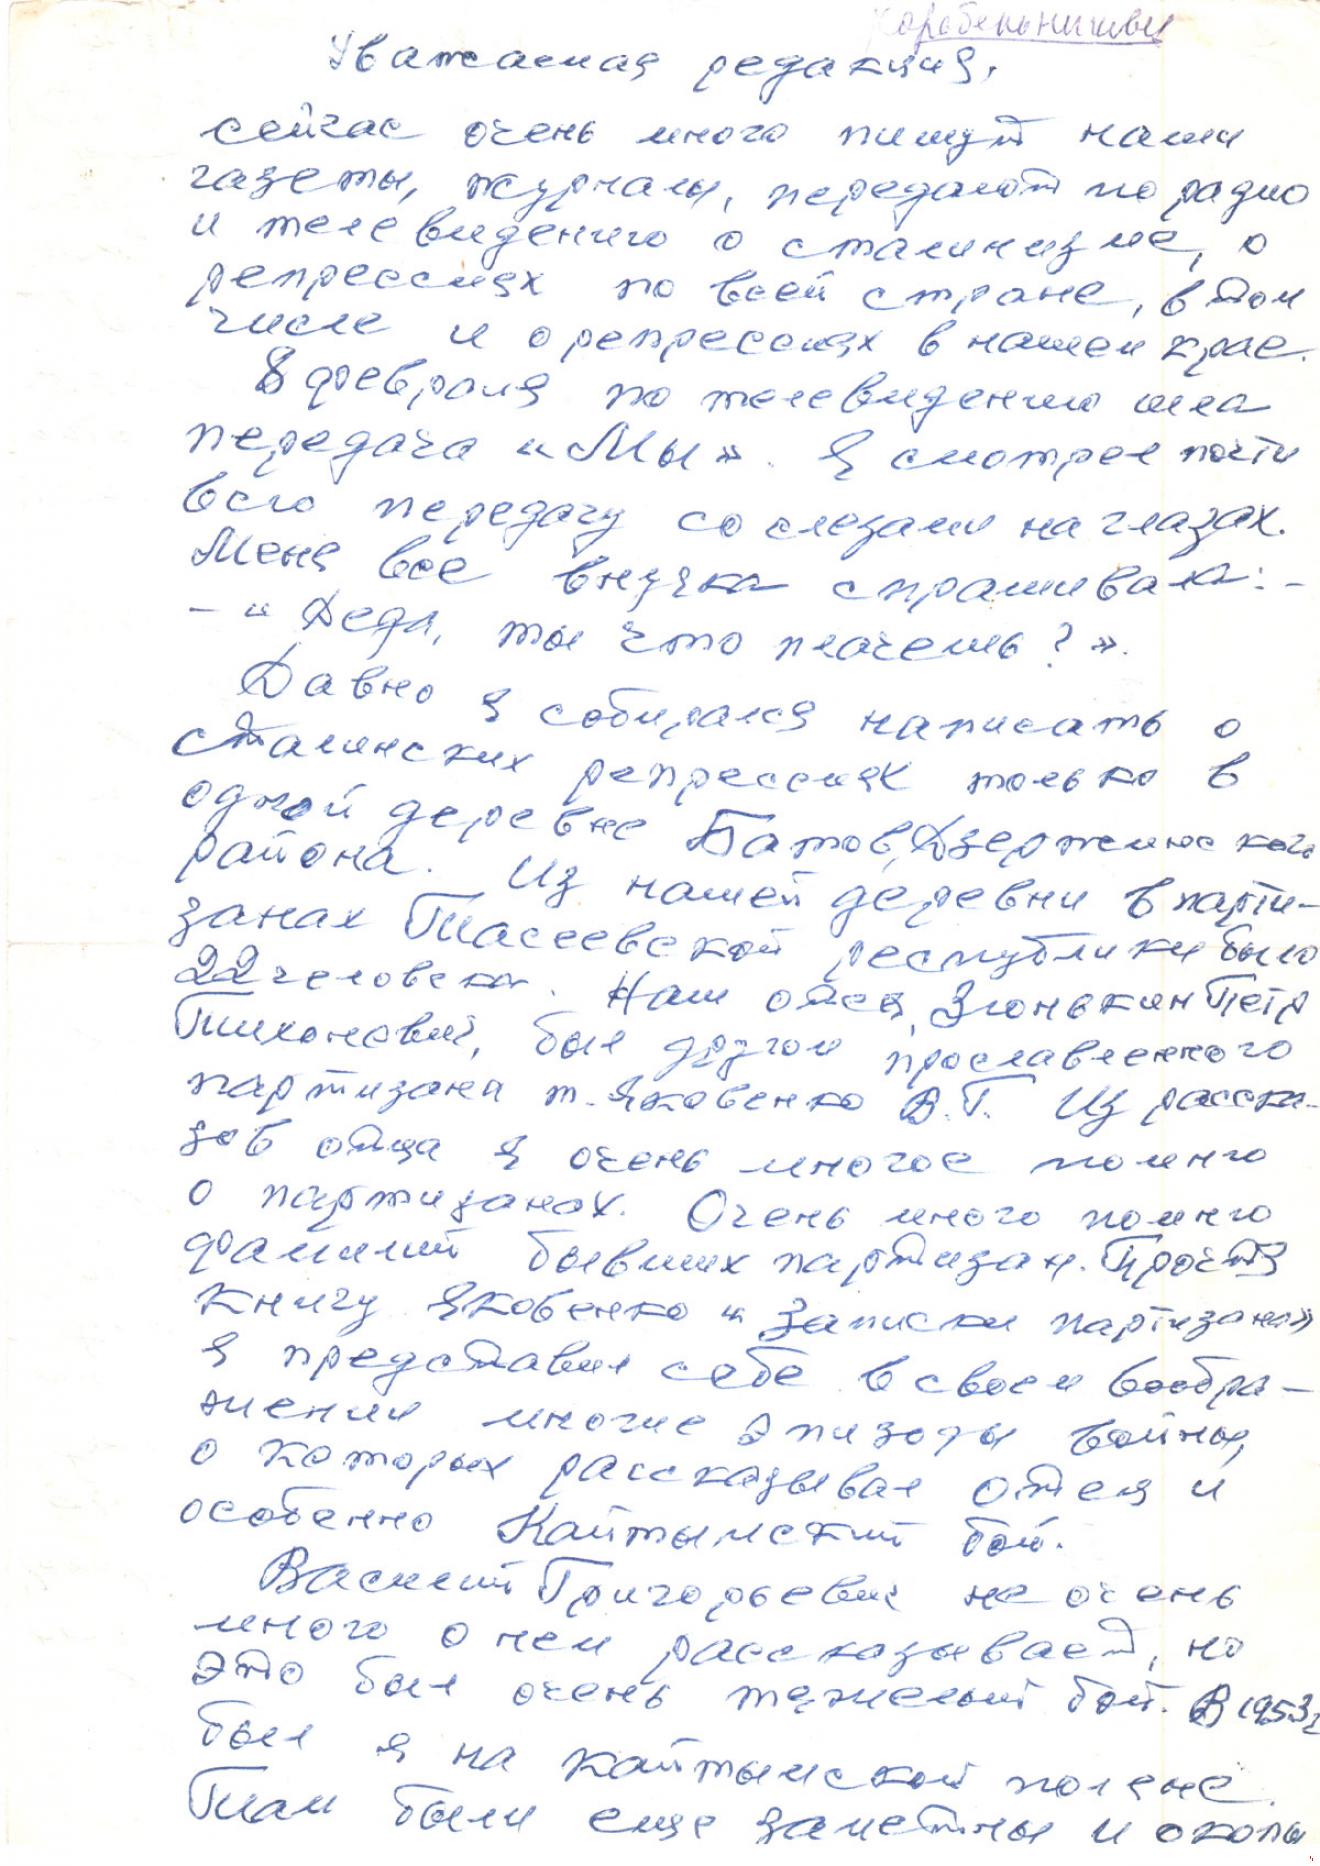 Коробельниковы
Уважаемая редакция,
сейчас очень много пишут наши
газеты, журналы, передают по радио
и телевидению о сталинизме, о
репрессиях по всей стране, в том
числе и о репрессиях в нашем крае.
8 февраля по телевидению шла
передача «Мы». Я смотрел почти
всю передачу со слезами на глазах.
Меня все внучка спрашивала: -
- "Деда, ты что плачешь?».
Давно я собирался написать о
сталинских репрессиях только в
одной деревне Батов, Дзержинского
района. Из нашей деревни в парти-
занах Тасеевской республики было
22 человека. Наш отец, Зюнькин Петр
Тихонович, был другом прославленного
партизана т. Яковенко В.Г. Из расска-
зов отца я очень многое помню
о партизанах. Очень много помню
фамилий бывших партизан. Прочтя
книгу Яковенко "Записки партизана»
я представил себе в своем вообра-
жении многие эпизоды войны,
о которых рассказывал отец и
особенно Кайтымский бой.
Василий Григорьевич не очень
много о нем рассказывает, но
это был очень тяжелый бой. В 1953г
был я на кайтымской поляне.
Там были еще заметны и окопы